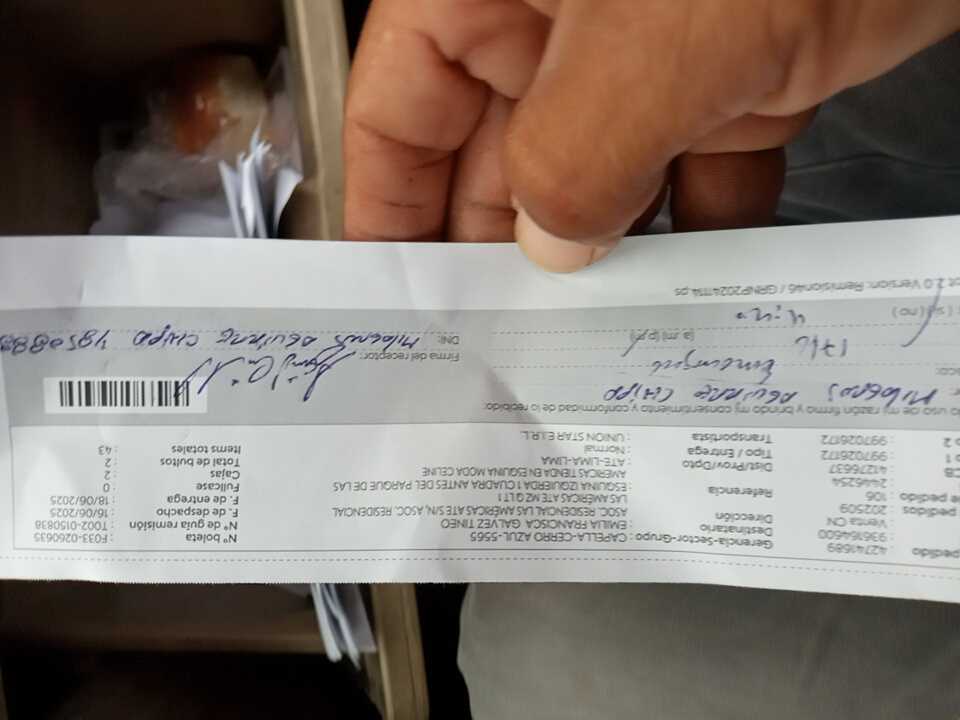 pedido : 42741689 Gerencia-Sector-Grupo : CAPELLA-CERRO AZUL-5565 N° boleta : F033-0260635
: 936164600 Destinatario : EMILIA FRANCISCA GALVEZ TINEO N° de guía remisión : T002-0150838
: Venta CN Dirección : ASOC. RESIDENCIAL LAS AMÉRICAS ATE S/N, ASOC. RESIDENCIAL F. de despacho : 16/06/2025
pedidos : 202509 LAS AMÉRICAS ATE MZ Q LT 1 F. de entrega : 18/06/2025
de pedido : 106 Referencia : ESQUINA IZQUIERDA 1 CUADRA ANTES DEL PARQUE DE LAS Fullcase : 0
: 2446254 AMÉRICAS TIENDA EN ESQUINA MODA CELINE Cajas : 2
CB : 41276637 Dist/Prov/Dpto : ATE-LIMA-LIMA Total de bultos : 2
o 1 : 997026172 Tipo / Entrega : Normal Items totales : 43
o 2 : 997026172 Transportista : UNION STAR E.I.R.L.
uso de mi razón firmo y brindo mi consentimiento y conformidad de lo recibido:
MILAGROS AGUIRRE CHIPD
Firma del receptor:
1716 (a.m) (p.m) DNI: MILAGROS AGUIRRE CHIPD
(si) (no)
2.0 Version: Remision46 / GRNP20241114.ps